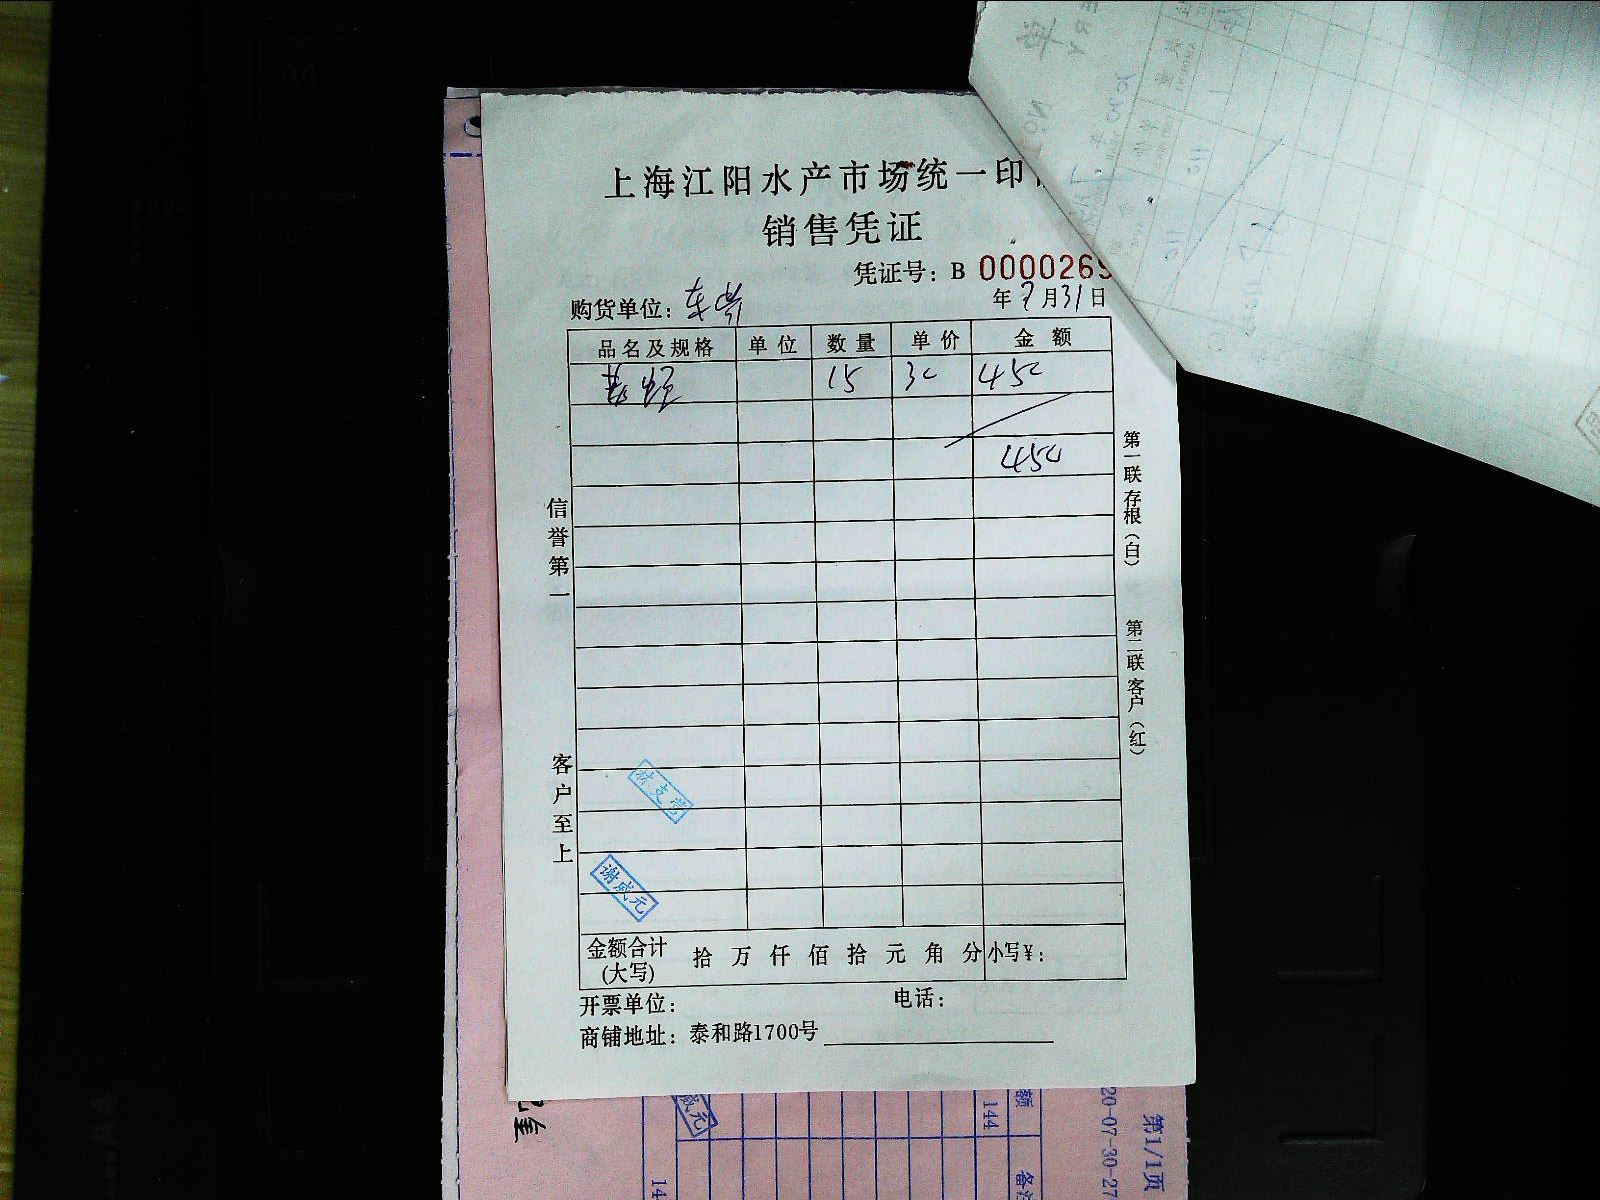 上海江阳水产市场统一印
销售凭证
凭证号：B 0000269
购货单位：
年 7月31日
品名及规格 单位 数量 单价 金额
15 30 450
450
信誉第一
客户至上
第一联存根（白）
第二联客户（红）
林支堂
谢咸元
金额合计(大写) 拾 万 仟 佰 拾 元 角 分 小写¥：
开票单位： 电话：
商铺地址：泰和路1700号
咸元
144
额
备注
14
20-07-30-27
第1/1页
A4